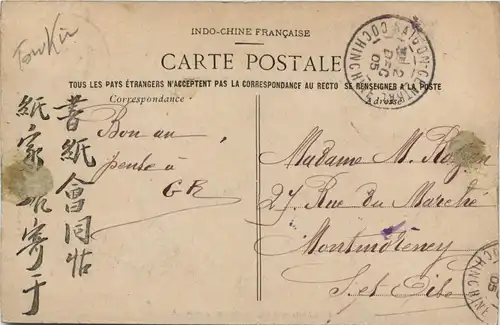 Tonkin
INDO-CHINE FRANÇAISE
CARTE POSTALE
TOUS LES PAYS ÉTRANGERS N'ACCEPTENT PAS LA CORRESPONDANCE AU RECTO SE RENSEIGNER A LA POSTE
Correspondance
Adresse
SAIGON-CENTRAL
2
DEC
05
COCHINCHINE
Bon an
pense à
GR
Madame M.
27 Rue du Marché
Montmorency
S. et Oise
書紙會同帖
紙家 寄于
COCHINCHINE
05